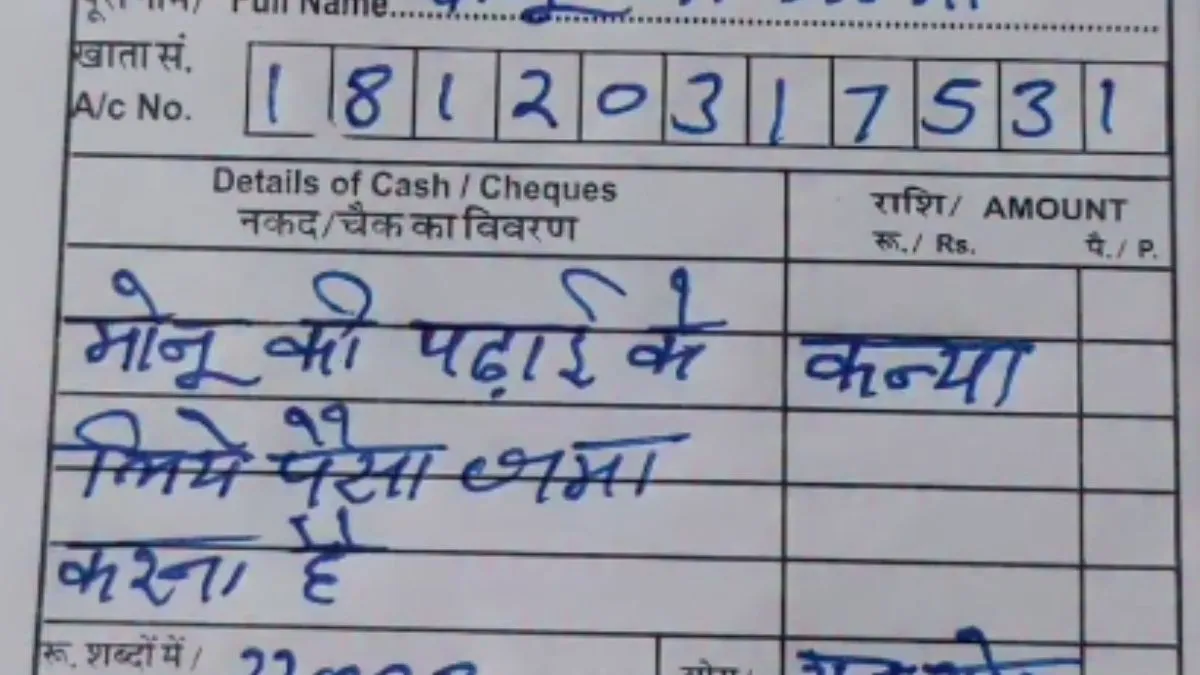 Full Name
खाता सं.
A/c No. 1 8 1 2 0 3 1 7 5 3 1
Details of Cash / Cheques
नकद/चैक का विवरण
राशि/ AMOUNT
रू./ Rs. पै./ P.
मोनू की पढ़ाई के कन्या
लिये पैसा जमा
करना है
रू. शब्दों में/